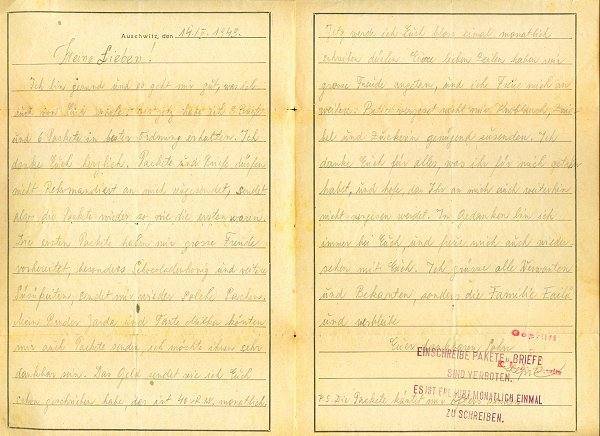 Auschwitz, den 14.IV. 1943.
Meine Lieben!
Ich bin gesund und es geht mir gut, was ich
auch von Euch
und 6 Packete in bester Ordnung erhalten. Ich
danke Euch herzlich. Packete und Briefe dürfen
nicht Rekomandiert an mich zugesendet, sendet
also die Packete wieder so wie die ersten waren.
Die ersten Packete haben mir grosse Freude
vorbereitet, besonders und weitere
Süssigkeiten sendet mir wieder solche Sachen.
Mein Bruder Jarda und Tante könnten
mir auch Packete senden, ich möchte ihnen sehr
dankbar sein. Das Geld sendet wie ich Euch
schon geschrieben habe, das ist 40 R.M. monatlich.
Jetz werde ich Euch bloss einmal monatlich
schreiben dürfen. Eure lieben Zeilen haben mir
grosse Freude angetan, und ich freue mich an
weitere. Bitte vergesst nicht mir Knoblauch, Zwie-
bel und Zuckerin genügend zusenden. Ich
danke Euch für alles, was ihr für mich getan
habet, und hofe, das Ihr an mich auch weiterhin
nicht vergessen werdet. In Gedanken bin ich
immer bei Euch, und freue mich auch wieder-
sehen mit Euch. Ich grüsse alle Verwanten
und Bekanten, sonders die Familie
und verbleibe
Euer dankbarer Sohn
Geprüft
EINSCHREIBE PAKETE u. BRIEFE
SIND VERBOTEN.
ES IST ERLAUBT MONATLICH EINMAL
ZU SCHREIBEN.
P.S. Die Packete könnt